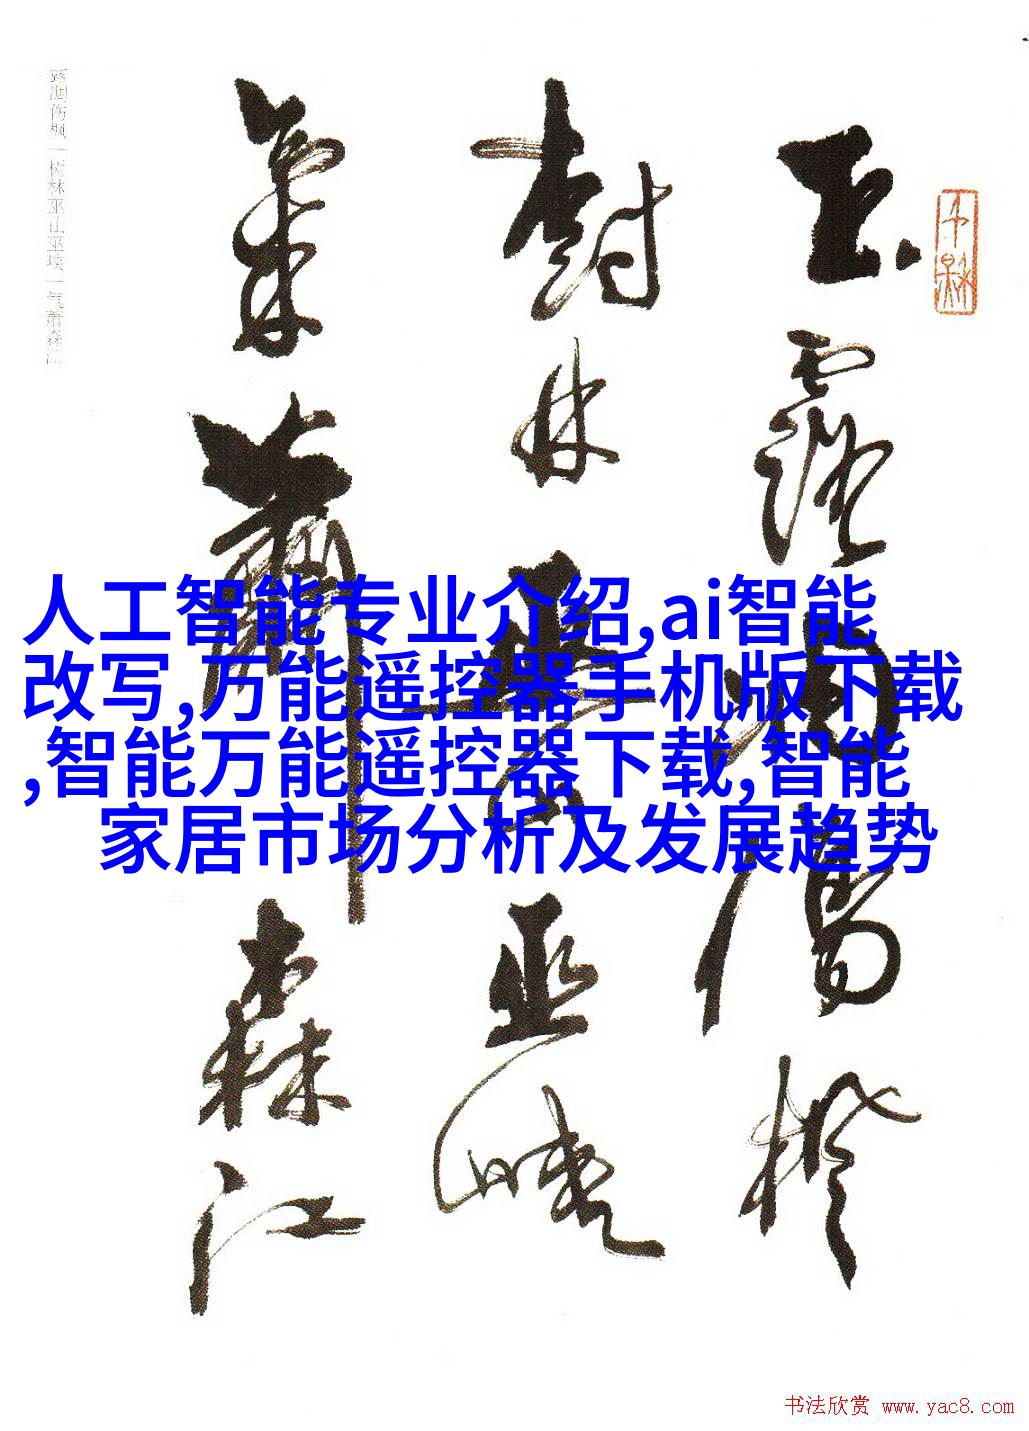 玉露凋傷楓
樹林巫山巫峡
氣蕭森江
露凋伤枫一树林巫山巫峡一气萧森江
人工智能专业介绍,ai智能
改写,万能遥控器手机版下载
,智能万能遥控器下载,智能
家居市场分析及发展趋势
书法欣赏 www.yac8.com